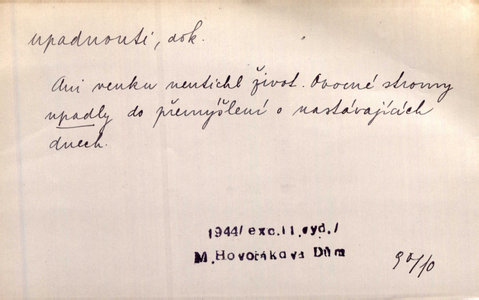 upadnouti, dok.
Ani venku neutichl život. Ovocné stromy
upadly do přemýšlení o nastávajících
dnech.
1944/ exc.11.vyd./
M.Hovořákova Dům
90/10